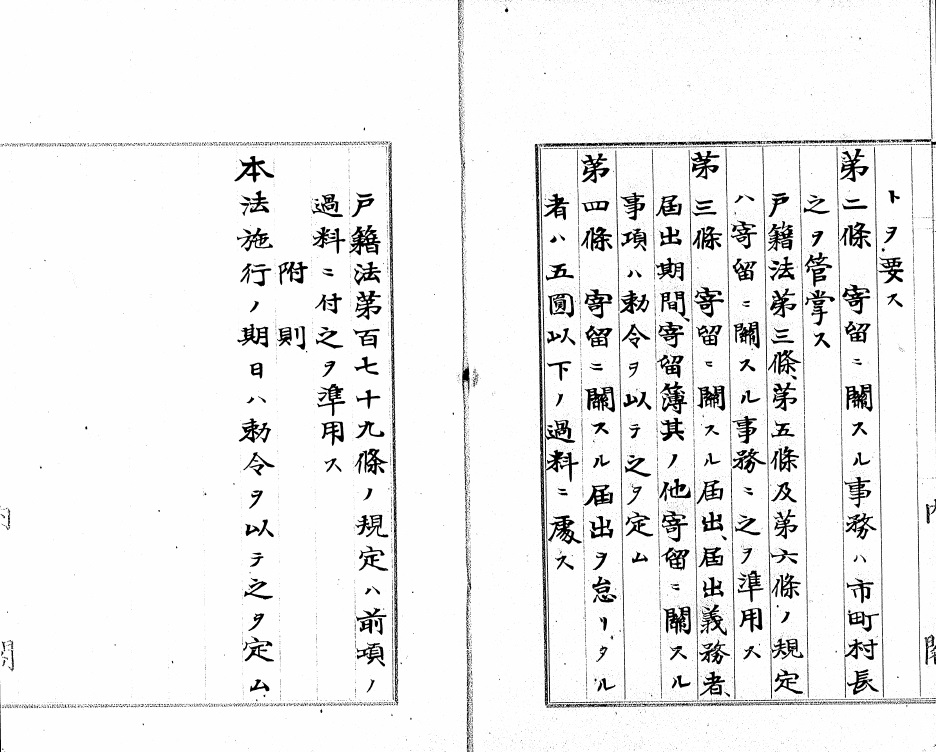 トヲ要ス
第二條 寄留ニ關スル事務ハ市町村長
之ヲ管掌ス
戸籍法第三條、第五條及第六條ノ規定
ハ寄留ニ關スル事務ニ之ヲ準用ス
第三條 寄留ニ關スル届出、届出義務者、
届出期間、寄留簿其ノ他寄留ニ關スル
事項ハ勅令ヲ以テ之ヲ定ム
第四條 寄留ニ關スル届出ヲ怠リタル
者ハ五圓以下ノ過料ニ處ス
戸籍法第百七十九條ノ規定ハ前項ノ
過料ニ付之ヲ準用ス
附則
本法施行ノ期日ハ勅令ヲ以テ之ヲ定ム